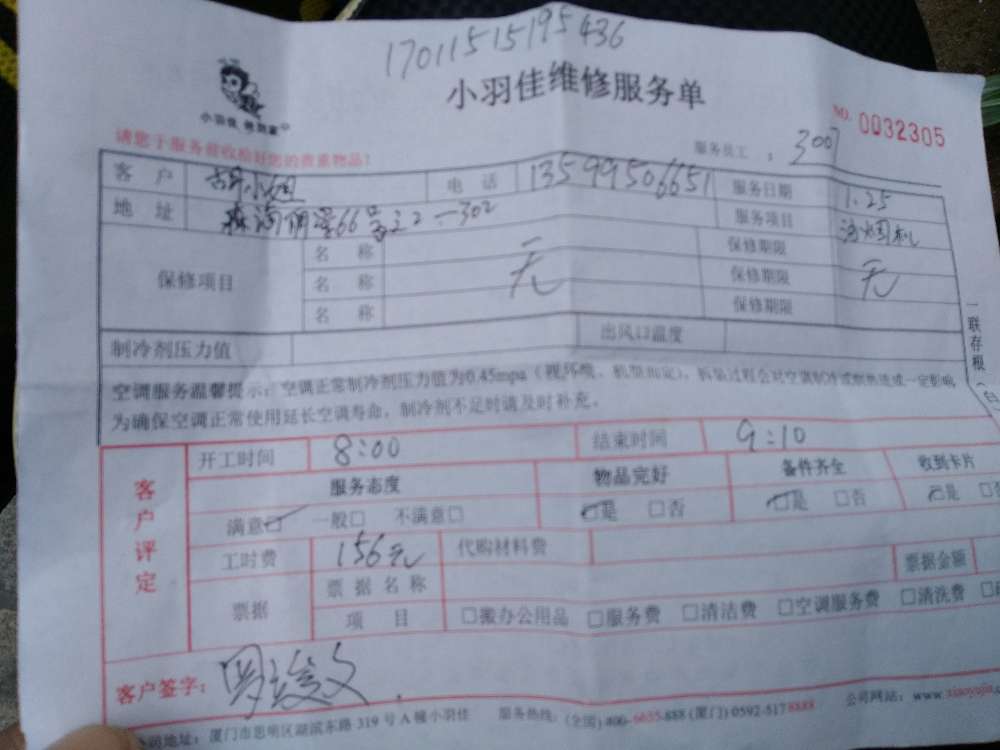 17011515195436
小羽佳维修服务单
小羽佳
NO. 0032305
请您于服务前收拾好您的贵重物品!
服务员工： 3007
客 户 小姐 电 话 13599506651 服务日期 1.25
地 址 66号之2-302 服务项目 洗烟机
保修项目 名 称 无 保修期限 无
名 称 保修期限
名 称 保修期限
制冷剂压力值 出风口温度
空调服务温馨提示：空调正常制冷剂压力值为0.45mpa（视环境、机型而定），拆装过程会对空调制冷或制热造成一定影响
为确保空调正常使用延长空调寿命，制冷剂不足时请及时补充。
一联存根（白
客户评定
开工时间 8:00 结束时间 9:10
服务态度 物品完好 备件齐全 收到卡片
满意□ 一般□ 不满意□ □是 □否 □是 □否 □是 □否
工时费 156元 代购材料费
票据 票据名称 票据金额
项 目 □搬办公用品 □服务费 □清洁费 □空调服务费 □清洗费
客户签字：
公司地址：厦门市思明区湖滨东路319号A幢小羽佳 服务热线：(全国)400-6635-888 (厦门)0592-5178888 公司网站：www.xiaoyujia.